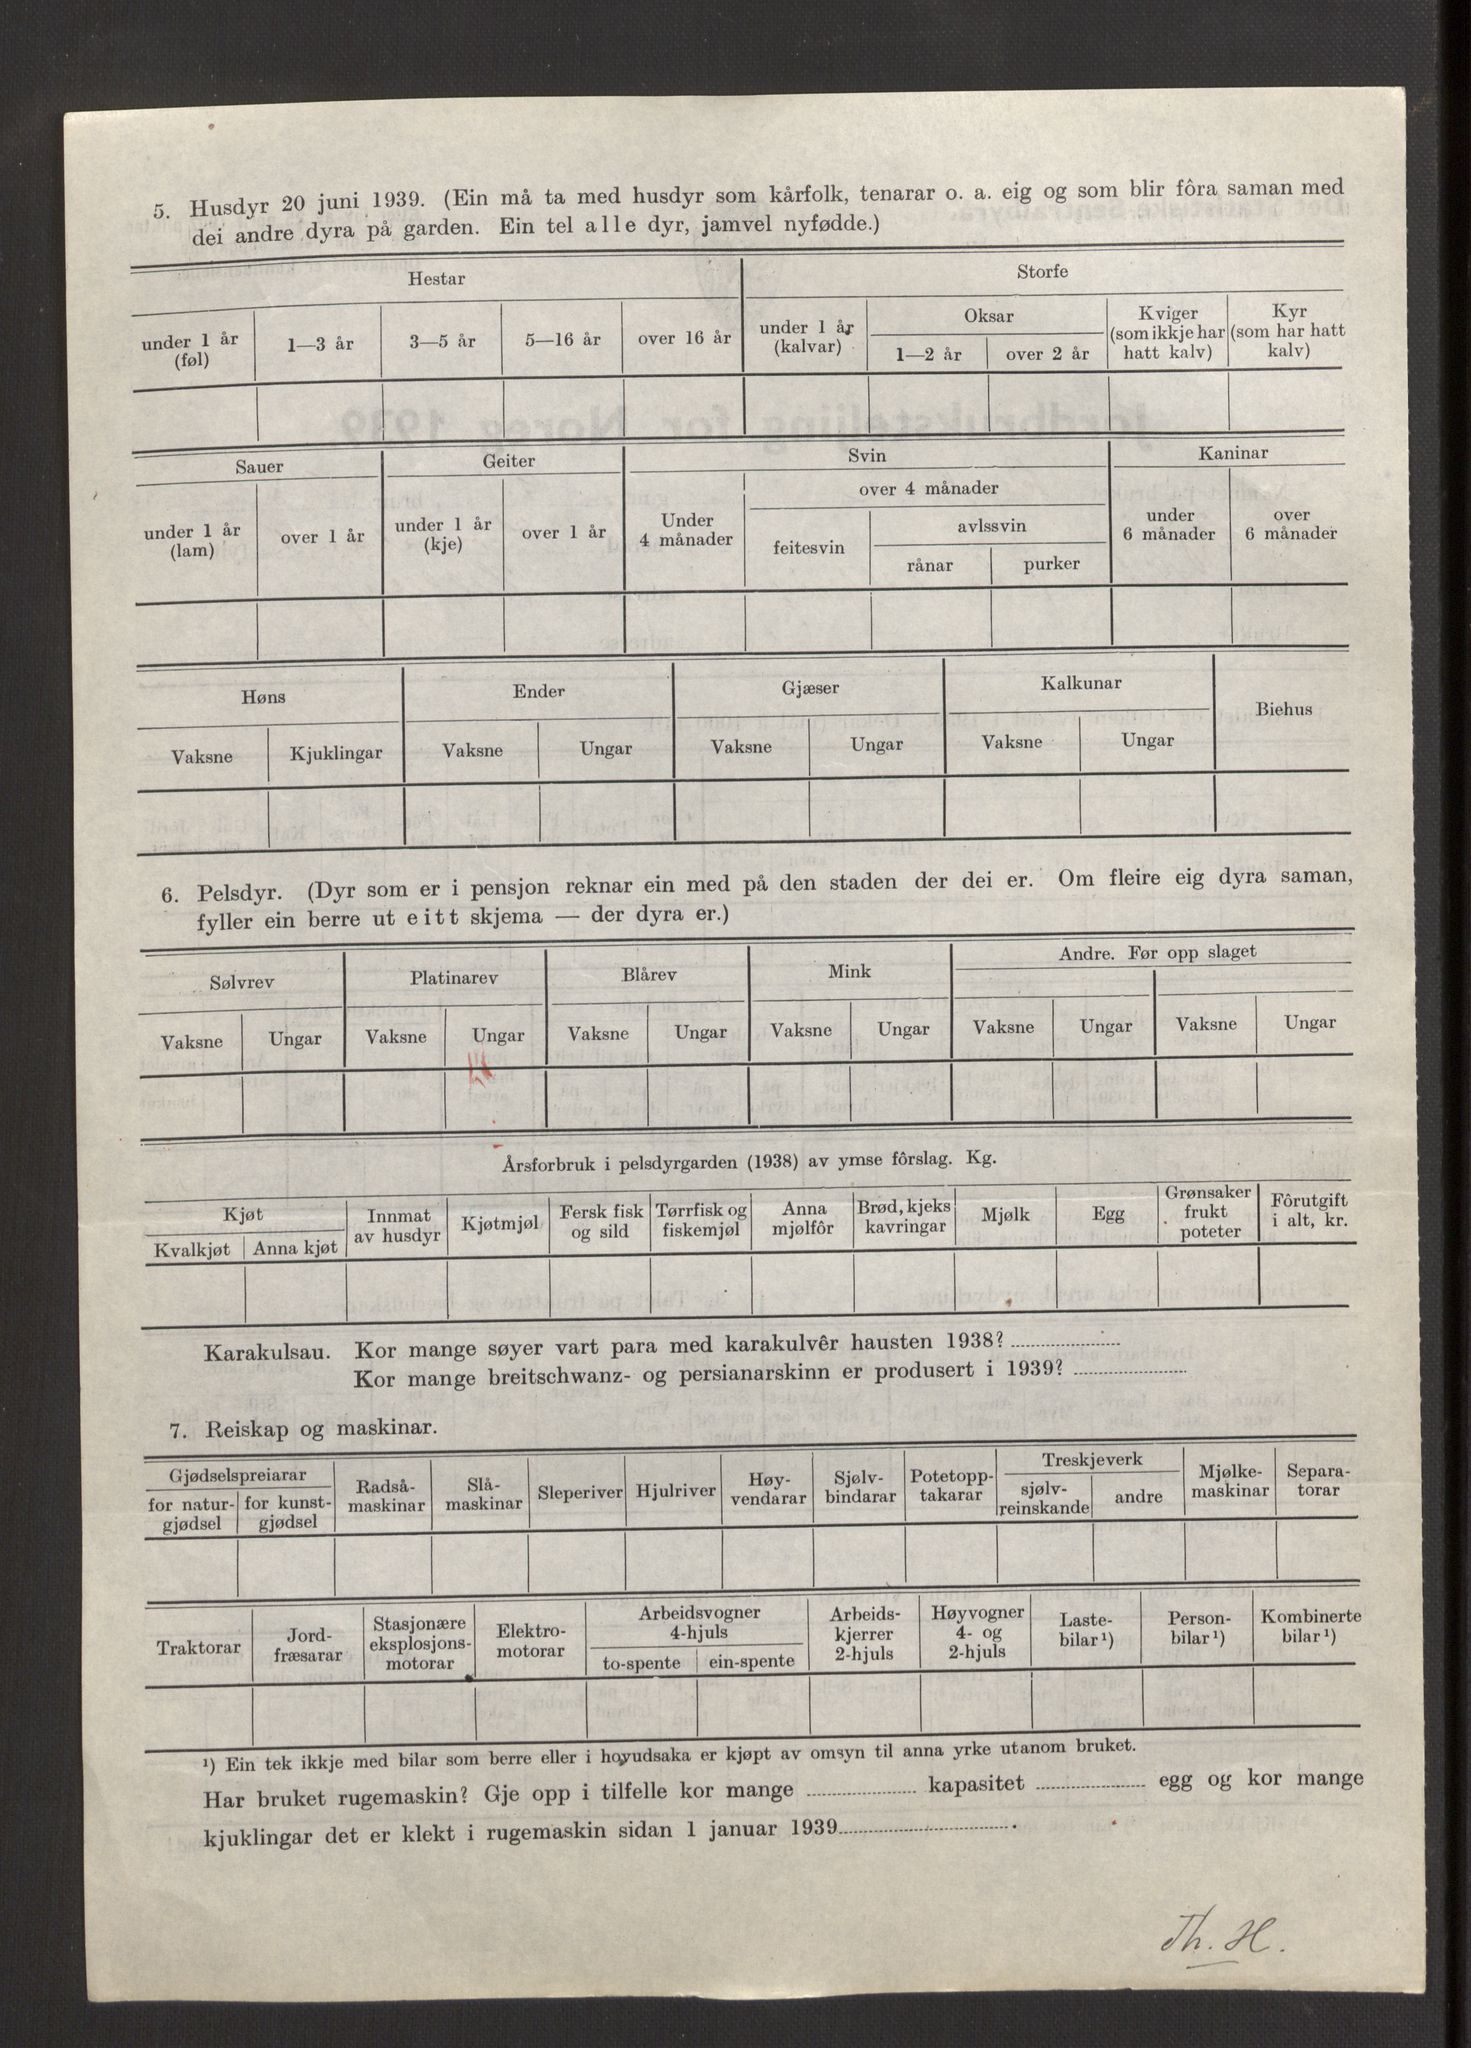 5. Husdyr 20 juni 1939. (Ein må ta med husdyr som kårfolk, tenarar o. a. eig og som blir fôra saman med
dei andre dyra på garden. Ein tel alle dyr, jamvel nyfødde.)
Hestar Storfe
under 1 år (føl) 1—3 år 3—5 år 5—16 år over 16 år under 1 år (kalvar) Oksar 1—2 år over 2 år Kviger (som ikkje har hatt kalv) Kyr (som har hatt kalv)
Sauer Geiter Svin Kaninar
under 1 år (lam) over 1 år under 1 år (kje) over 1 år Under 4 månader over 4 månader feitesvin avlssvin rånar purker under 6 månader over 6 månader
Høns Ender Gjæser Kalkunar Biehus
Vaksne Kjuklingar Vaksne Ungar Vaksne Ungar Vaksne Ungar
6. Pelsdyr. (Dyr som er i pensjon reknar ein med på den staden der dei er. Om fleire eig dyra saman,
fyller ein berre ut eitt skjema — der dyra er.)
Sølvrev Platinarev Blårev Mink Andre. Før opp slaget
Vaksne Ungar Vaksne Ungar Vaksne Ungar Vaksne Ungar Vaksne Ungar Vaksne Ungar
Årsforbruk i pelsdyrgarden (1938) av ymse fôrslag. Kg.
Kjøt Kvalkjøt Anna kjøt Innmat av husdyr Kjøtmjøl Fersk fisk og sild Tørrfisk og fiskemjøl Anna mjølfôr Brød, kjeks kavringar Mjølk Egg Grønsaker frukt poteter Fôrutgift i alt, kr.
Karakulsau. Kor mange søyer vart para med karakulvêr hausten 1938?
Kor mange breitschwanz- og persianarskinn er produsert i 1939?
7. Reiskap og maskinar.
Gjødselspreiarar for natur-gjødsel for kunst-gjødsel Radså-maskinar Slå-maskinar Sleperiver Hjulriver Høy-vendarar Sjølv-bindarar Potetopp-takarar Treskjeverk sjølv-reinskande andre Mjølke-maskinar Separa-torar
Traktorar Jord-fræsarar Stasjonære eksplosjons-motorar Elektro-motorar Arbeidsvogner 4-hjuls to-spente ein-spente Arbeids-kjerrer 2-hjuls Høyvogner 4- og 2-hjuls Laste-bilar¹) Person-bilar¹) Kombinerte bilar¹)
¹) Ein tek ikkje med bilar som berre eller i hovudsaka er kjøpt av omsyn til anna yrke utanom bruket.
Har bruket rugemaskin? Gje opp i tilfelle kor mange kapasitet egg og kor mange
kjuklingar det er klekt i rugemaskin sidan 1 januar 1939
Th. H.